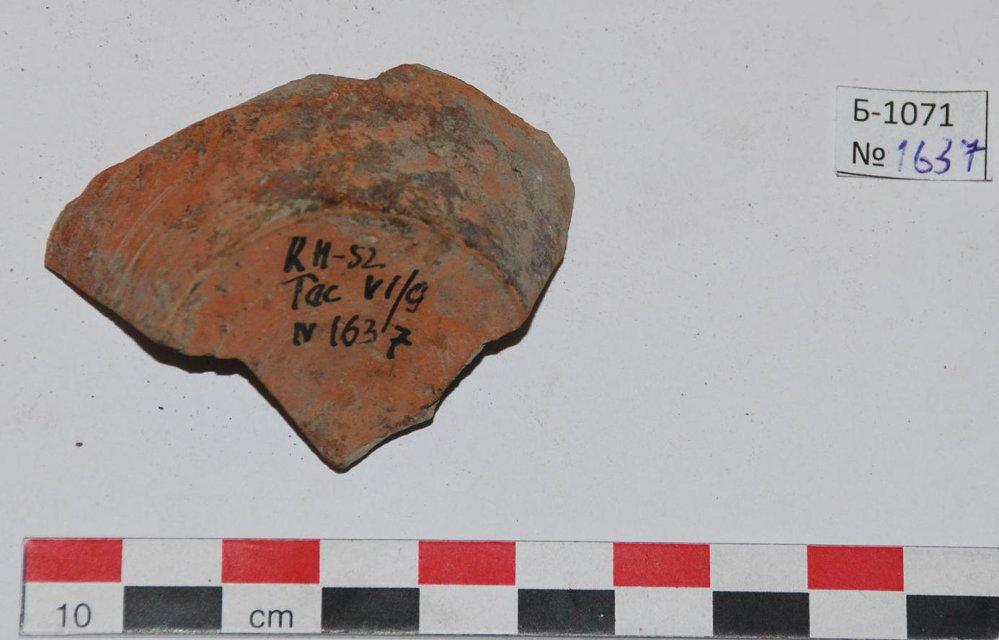 КМ-52
Тас VI/9
N 1637
Б-1071
№ 1637
10 cm